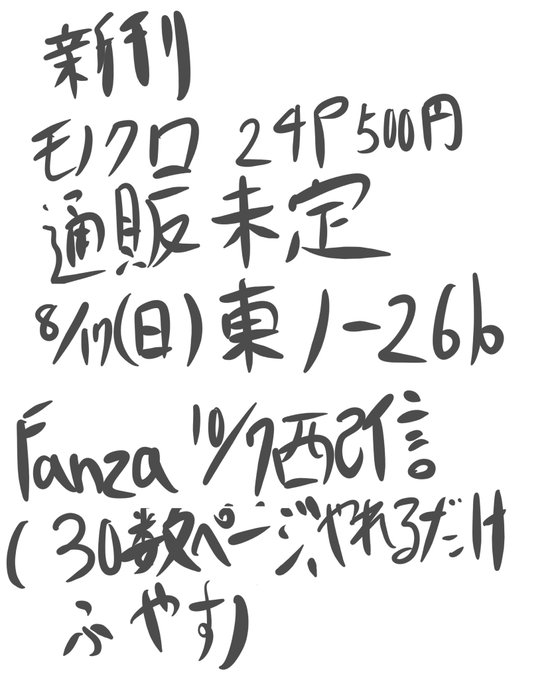 新刊
モノクロ 24P 500円
通販 未定
8/17(日) 東ノ-26b
Fanza 10/7配信
(30数ページ、やれるだけ
ふやす)